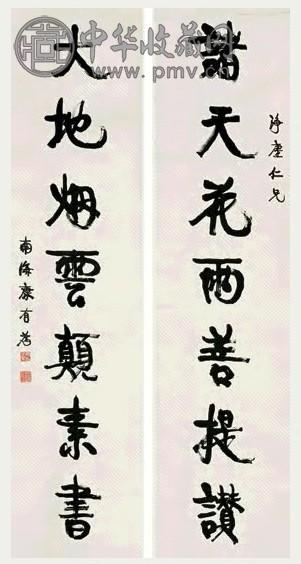 中华收藏网
www.pmv.cn
淨塵仁兄
諸天花雨菩提讚
大地烟雲顛素書
南海康有為